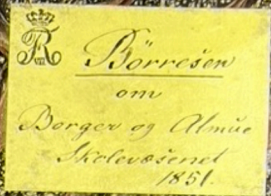 Børresen
om
Borger og Almue
Skolevæsenet
1851.